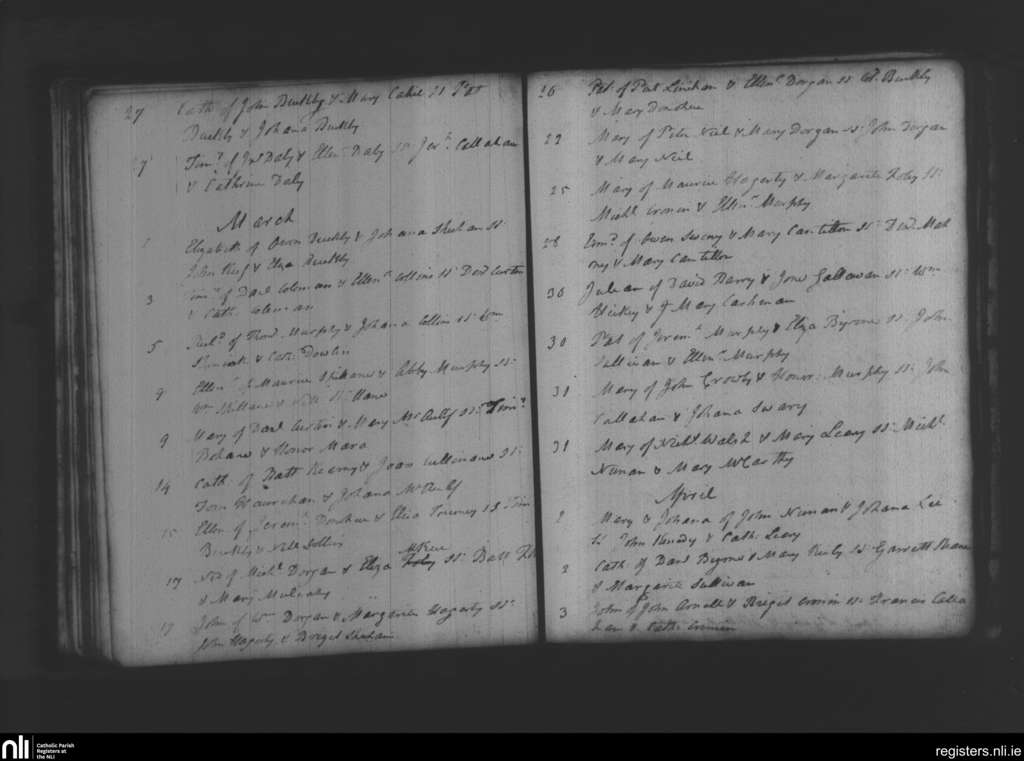 27 Cath of John Buckly & Mary Cahil Ss Pat
Buckly & Johana Buckly
27 Tim.y of Jas Daly & Ellen Daly Ss Jer.h Callahan
& Cathrine Daly
March
1 Elizabeth of Owen Buckly & Johana Shehan Ss
John Keef & Elza Buckly
3 of Davd Coleman & Ellen.r Collins Ss Davd Curtin
& Cath. Coleman
5 of Thos Murphy & Johana Collins Ss Wm
& Cath Dowlin
9 Ellen.r of Maurice Spillane & Abby Murphy Ss
Wm Spillane & Spillane
9 Mary of Davd Curtin & Mary McAulif Ss Tim.y
& Honor Mara
14 Cath of Batt Kearny & Joan Cullinane Ss
Tom & Johana McAulif
15 Ellen of Jerem.h Donohue & Eliza Ss Tim
Buckly & Nell Sollis
17 Ned of Mich.l Dorgan & Eliza McKee Ss Batt
& Mary Mulcahy
17 John of Wm Dorgan & Margaret Hagerty Ss
John Hagerty & Breget Shehan
16 Pat of Pat Linehan & Ellen.r Dorgan Ss Buckly
& Mary Donohue
22 Mary of Peter Neil & Mary Dorgan Ss John Dorgan
& Mary Neil
25 Mary of Maurice Hagerty & Margarite Foley Ss
Mich.l Cronin & Ellen.r Murphy
28 of Owen Sweny & Mary Cantillon Ss Davd Mah
ony & Mary Cantillon
30 Julean of David Barry & Jone Gallavan Ss Wm
Hickey & Mary Cashman
30 Pat of Jerem.h Murphy & Eliza Byrone Ss John
Sullivan & Ellen.r Murphy
31 Mary of John Crowly & Honor Murphy Ss John
Callahan & Johana Swany
31 Mary of Walsh & Mary Leary Ss Mich.l
Nunan & Mary McCarthy
April
2 Mary & Johana of John Nunan & Johana Lee
Ss John & Cath. Leary
2 Cath of Davd Byrone & Mary Ss Garrett
& Margarite Sullivan
3 John of John & Breget Cronin Ss Francis Calla
han & Cath. Cronin
nli
Catholic Parish
Registers at
the NLI
registers.nli.ie